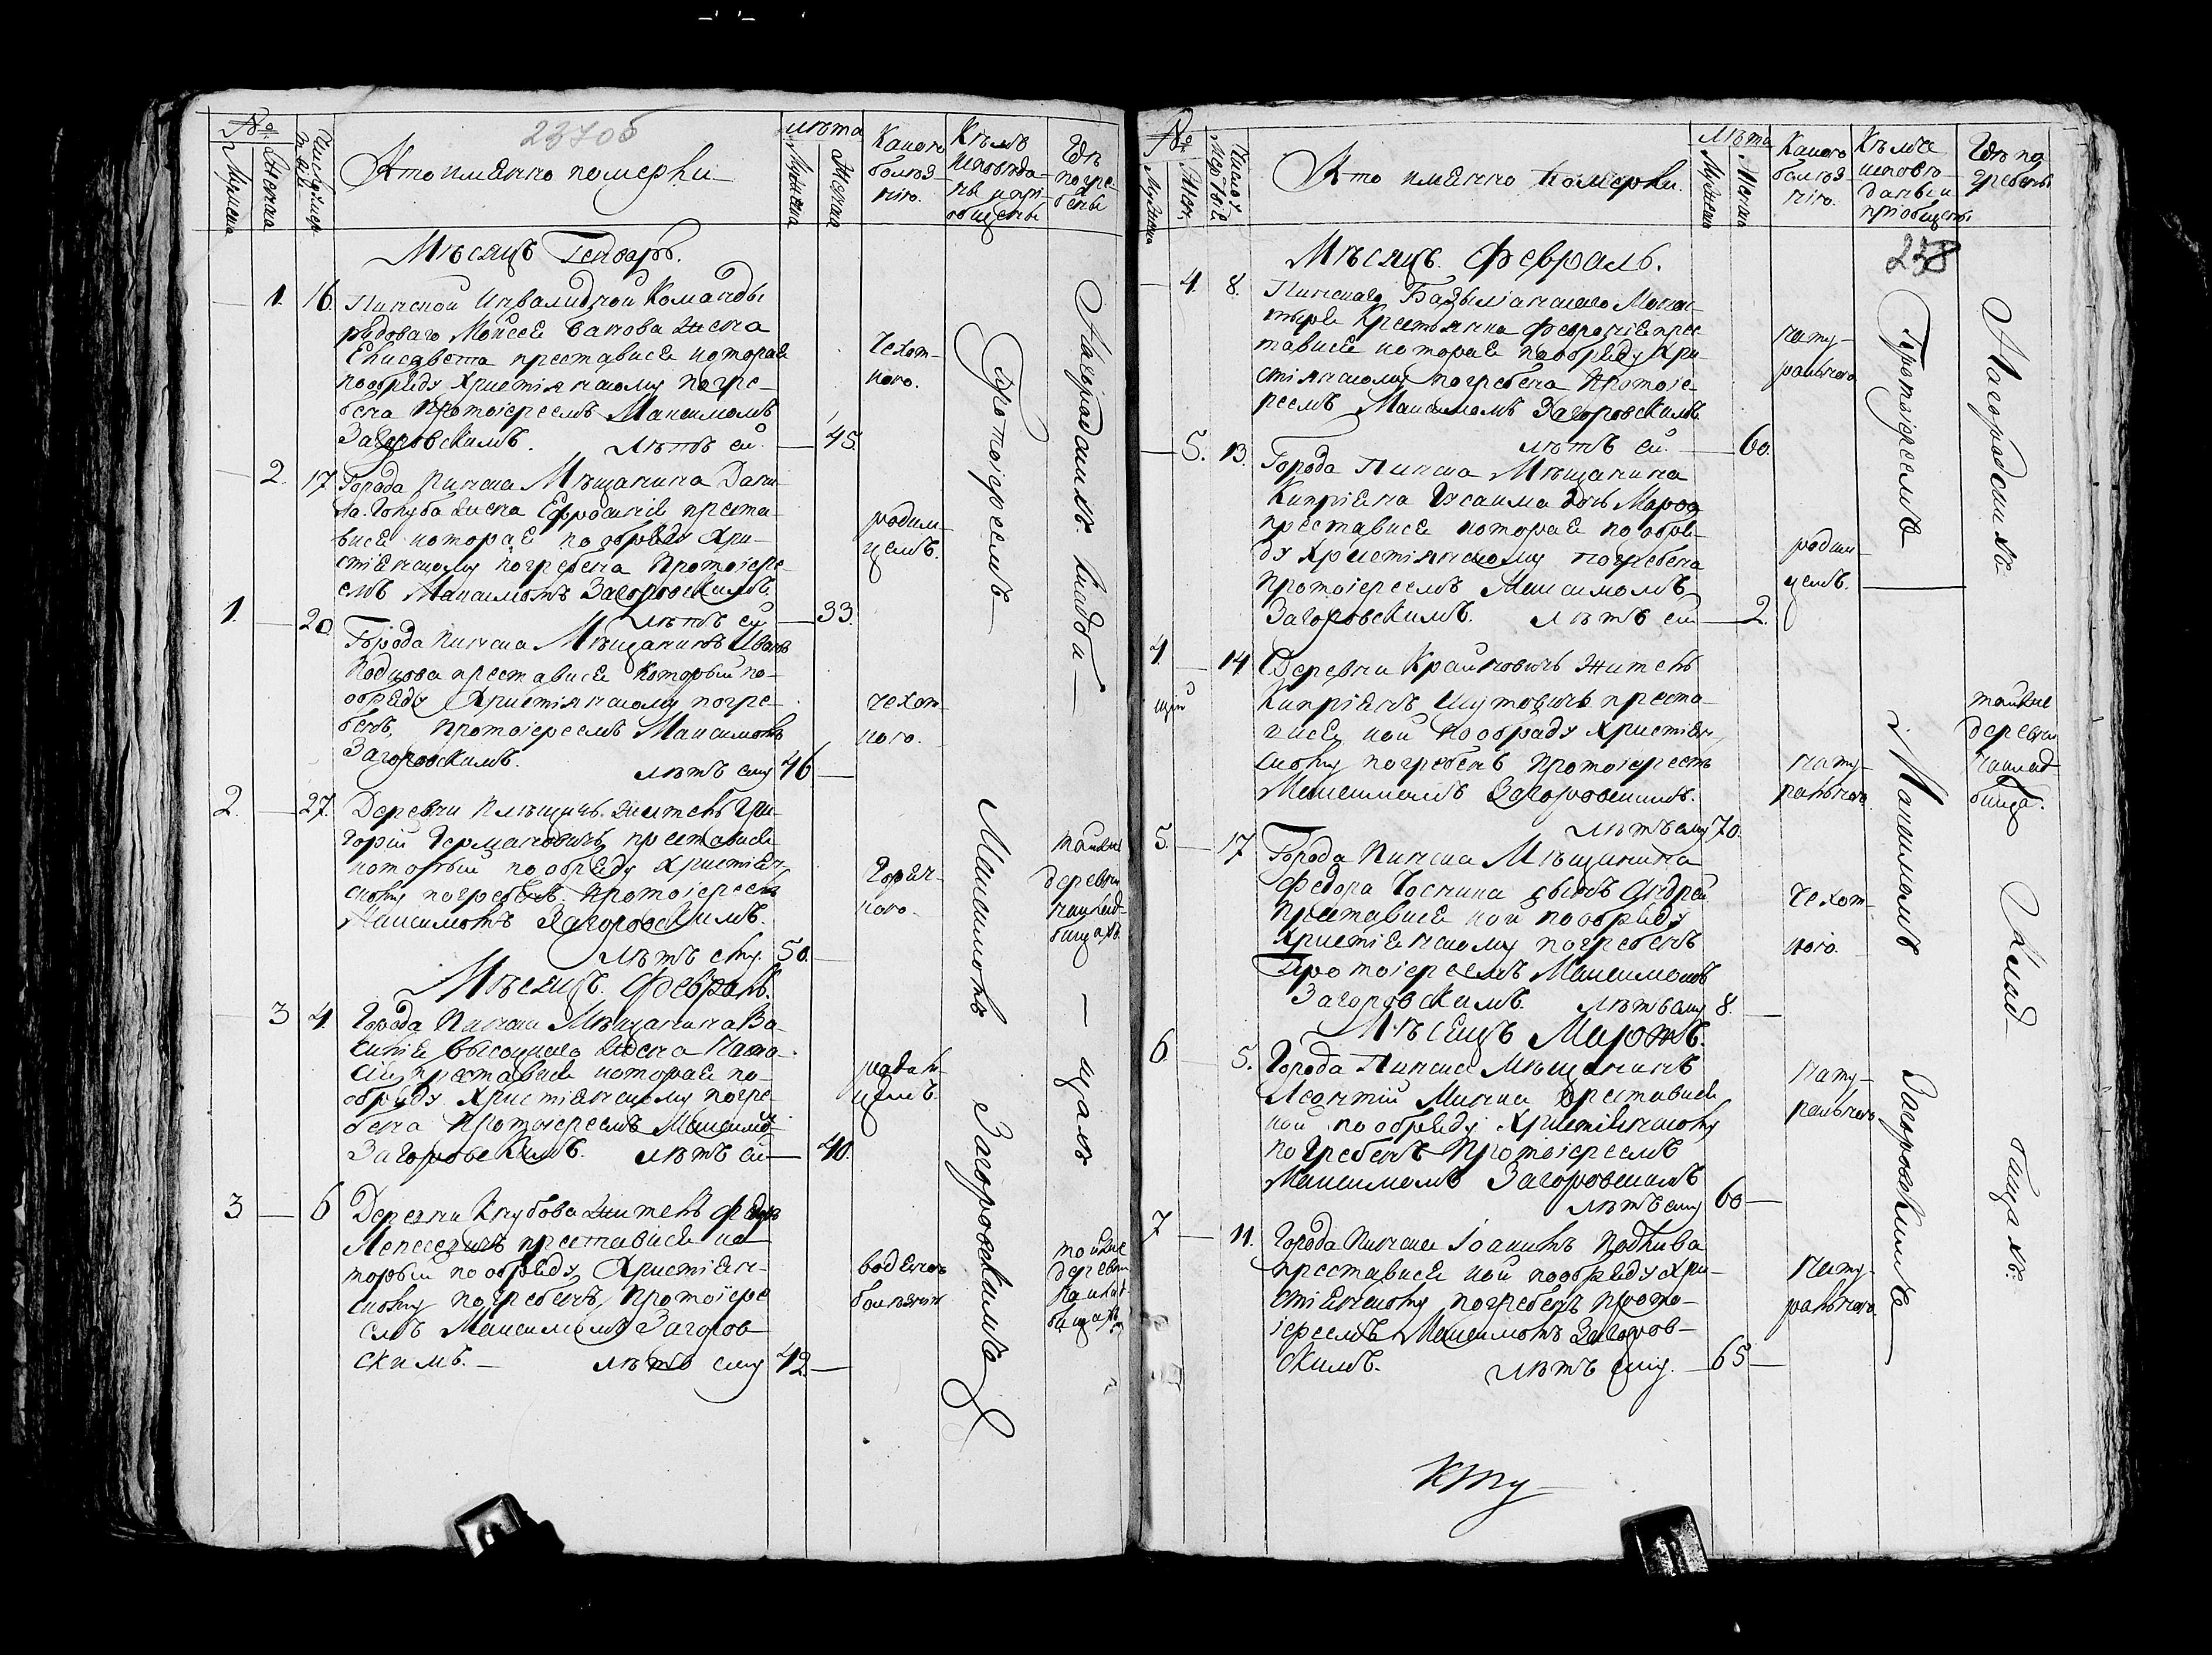 237об
№
Мужеска
Женска
Кто именно померли
лѣта
Мужеска
Женска
Какою
болѣз
нію.
Кѣмъ
исповѣда
ны и прі
общены
Гдѣ
погре
бены
Мѣсяцъ Генваръ.
1. 16. Пинской Инвалидной Команды
рядоваго Моисея жена
Елисавета преставися которая
пообряду Христіянскому погре-
бена Протоіереемъ Максимомъ
Загоровскимъ. лѣтъ ей. — 45.
чехот-
кою.
2. 17 Города Пинска Мѣщанина Дани-
ла Голуба жена Ефросинія преста-
вися которая пообряду Хри-
стіянскому погребена Протоіере-
емъ Максимомъ Загоровскимъ
лѣтъ ей — 33.
родим-
цемъ.
1. — 20. Города Пинска Мѣщанинъ Иванъ
преставися который по-
обряду Христіянскому погре-
бенъ, Протоіереемъ Максимомъ
Загоровскимъ. лѣтъ ему 46 —
чехот-
кою.
2. — 27. Деревни житель Гри-
горій Германовичъ преставися
который пообряду Христіян-
скому погребенъ Протоіереемъ
Максимомъ Загоровскимъ.
лѣтъ ему. 50. —
горяч-
кою.
тойже
деревни
наклад-
бищахъ
Мѣсяцъ Февраль.
3 4. Города Пинска Мѣщанина Ва-
силія жена
преставися которая по-
обряду Христіянскому погре-
бена Протоіереемъ Максимомъ
Загоровскимъ. лѣтъ ей — 40.
цемъ.
3 — 6 Деревни житель Федоръ
преставися ко-
торый пообряду Христіян-
скому погребенъ, Протоіере-
емъ Максимомъ Загоров-
скимъ. — лѣтъ ему 42. —
водяною
болѣзнію
тойже
деревни
наклад
бищахъ
Протоіереемъ — Максимомъ Загоровскимъ
Нагородскихъ кладби — щахъ
№
Мужеска
Жен.
Кто именно померли.
лѣта
Мужеска
Женска
Какою
болѣз
нію.
Кѣмъ
исповѣ-
даны и
пріобщены
Гдѣ по
гребены
238
Мѣсяцъ Февраль.
— 4. 8. Пинскаго Базыліанскаго Монас-
тыря Крестьянка Февронія прес-
тавися которая пообряду Хри-
стіянскому погребена Протоіе-
реемъ Максимомъ Загоровскимъ
лѣтъ ей. — 60.
нату-
ральною
— 5. 13. Города Пинска Мѣщанина
Кипріяна дочь Марфа
преставися которая пообря-
ду Христіянскому погребена
Протоіереемъ Максимомъ
Загоровскимъ. лѣтъ ей — 2.
родим-
цемъ.
4 — 14 Деревни Крайновичъ житель
Кипріянъ Шутовичъ преста-
вися кой пообряду Христіян-
скому погребенъ Протоіереемъ
Максимомъ Загоровскимъ.
лѣтъ ему 70.
нату-
ральною
тойже
деревни
наклад-
бища.
5. — 17 Города Пинска Мѣщанина
Федора сынъ Андрей
преставися кой пообряду
Христіянскому погребенъ
Протоіереемъ Максимомъ
Загоровскимъ. лѣтъ ему 8. —
чехот-
кою.
Мѣсяцъ Мартъ.
6. 5. Города Пинска Мѣщанинъ
Леонтій Минка преставися
кой пообряду Христіянскому
погребенъ Протоіереемъ
Максимомъ Загоровскимъ
лѣтъ ему 60 —
нату-
ральною
7 — 11. Города Пинска Іоаннъ
преставися кой пообряду Хри-
стіянскому погребенъ прото-
іереемъ Максимомъ Загоров-
скимъ. лѣтъ ему. — 65 —
нату-
ральною
Протоіереемъ — Максимомъ Загоровскимъ
Нагородскихъ Клад- бищахъ.